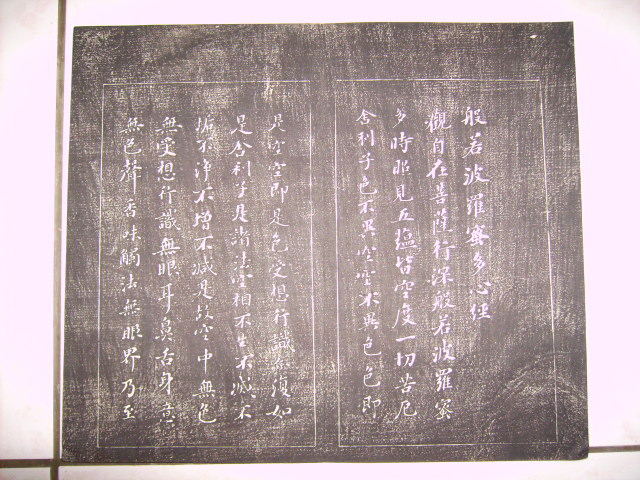 般若波羅蜜多心經
觀自在菩薩行深般若波羅蜜
多時照見五蕴皆空度一切苦厄
舍利子色不異空空不異色色即
是空空即是色受想行識亦復如
是舍利子是諸法空相不生不滅不
垢不淨不增不減是故空中無色
無受想行識無眼耳鼻舌身意
無色聲香味觸法無眼界乃至